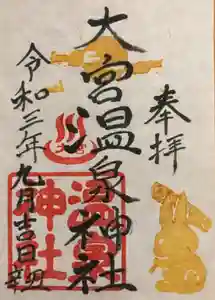 奉拝
大宮温泉神社
令和三年九月吉日
温泉
神社